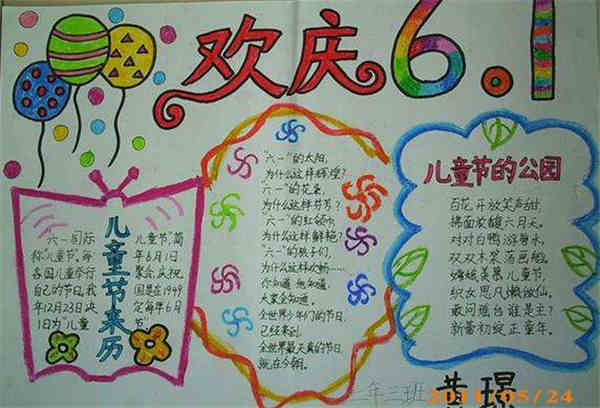 欢庆6.1
儿童节来历
"六一"国际儿童节,简
称"儿童节",每年6月1日
各国儿童举行聚会,庆祝
自己的节日,我国是在1949
年12月23日决定每年6月
1日为"儿童节。
"六一"的太阳,
为什么这样辉煌?
"六一"的花朵,
为什么这样芬芳?
"六一"的红领巾
为什么这样鲜艳?
"六一"的孩子们,
为什么这样欢畅……
你知道 他知道,
大家全知道。
全世界少年们的节日,
已经来到。
全世界最天真的节日,
就在今朝。
儿童节的公园
百花开放笑声甜
拂面浓馥六月天。
对对白鸭游碧水,
双双木桨荡画船。
嫦娥美慕儿童节,
织女思凡懒做仙。
敢问擂台谁是主?
新蕾初绽正童年。
二年三班 黄琨
2011/05/24